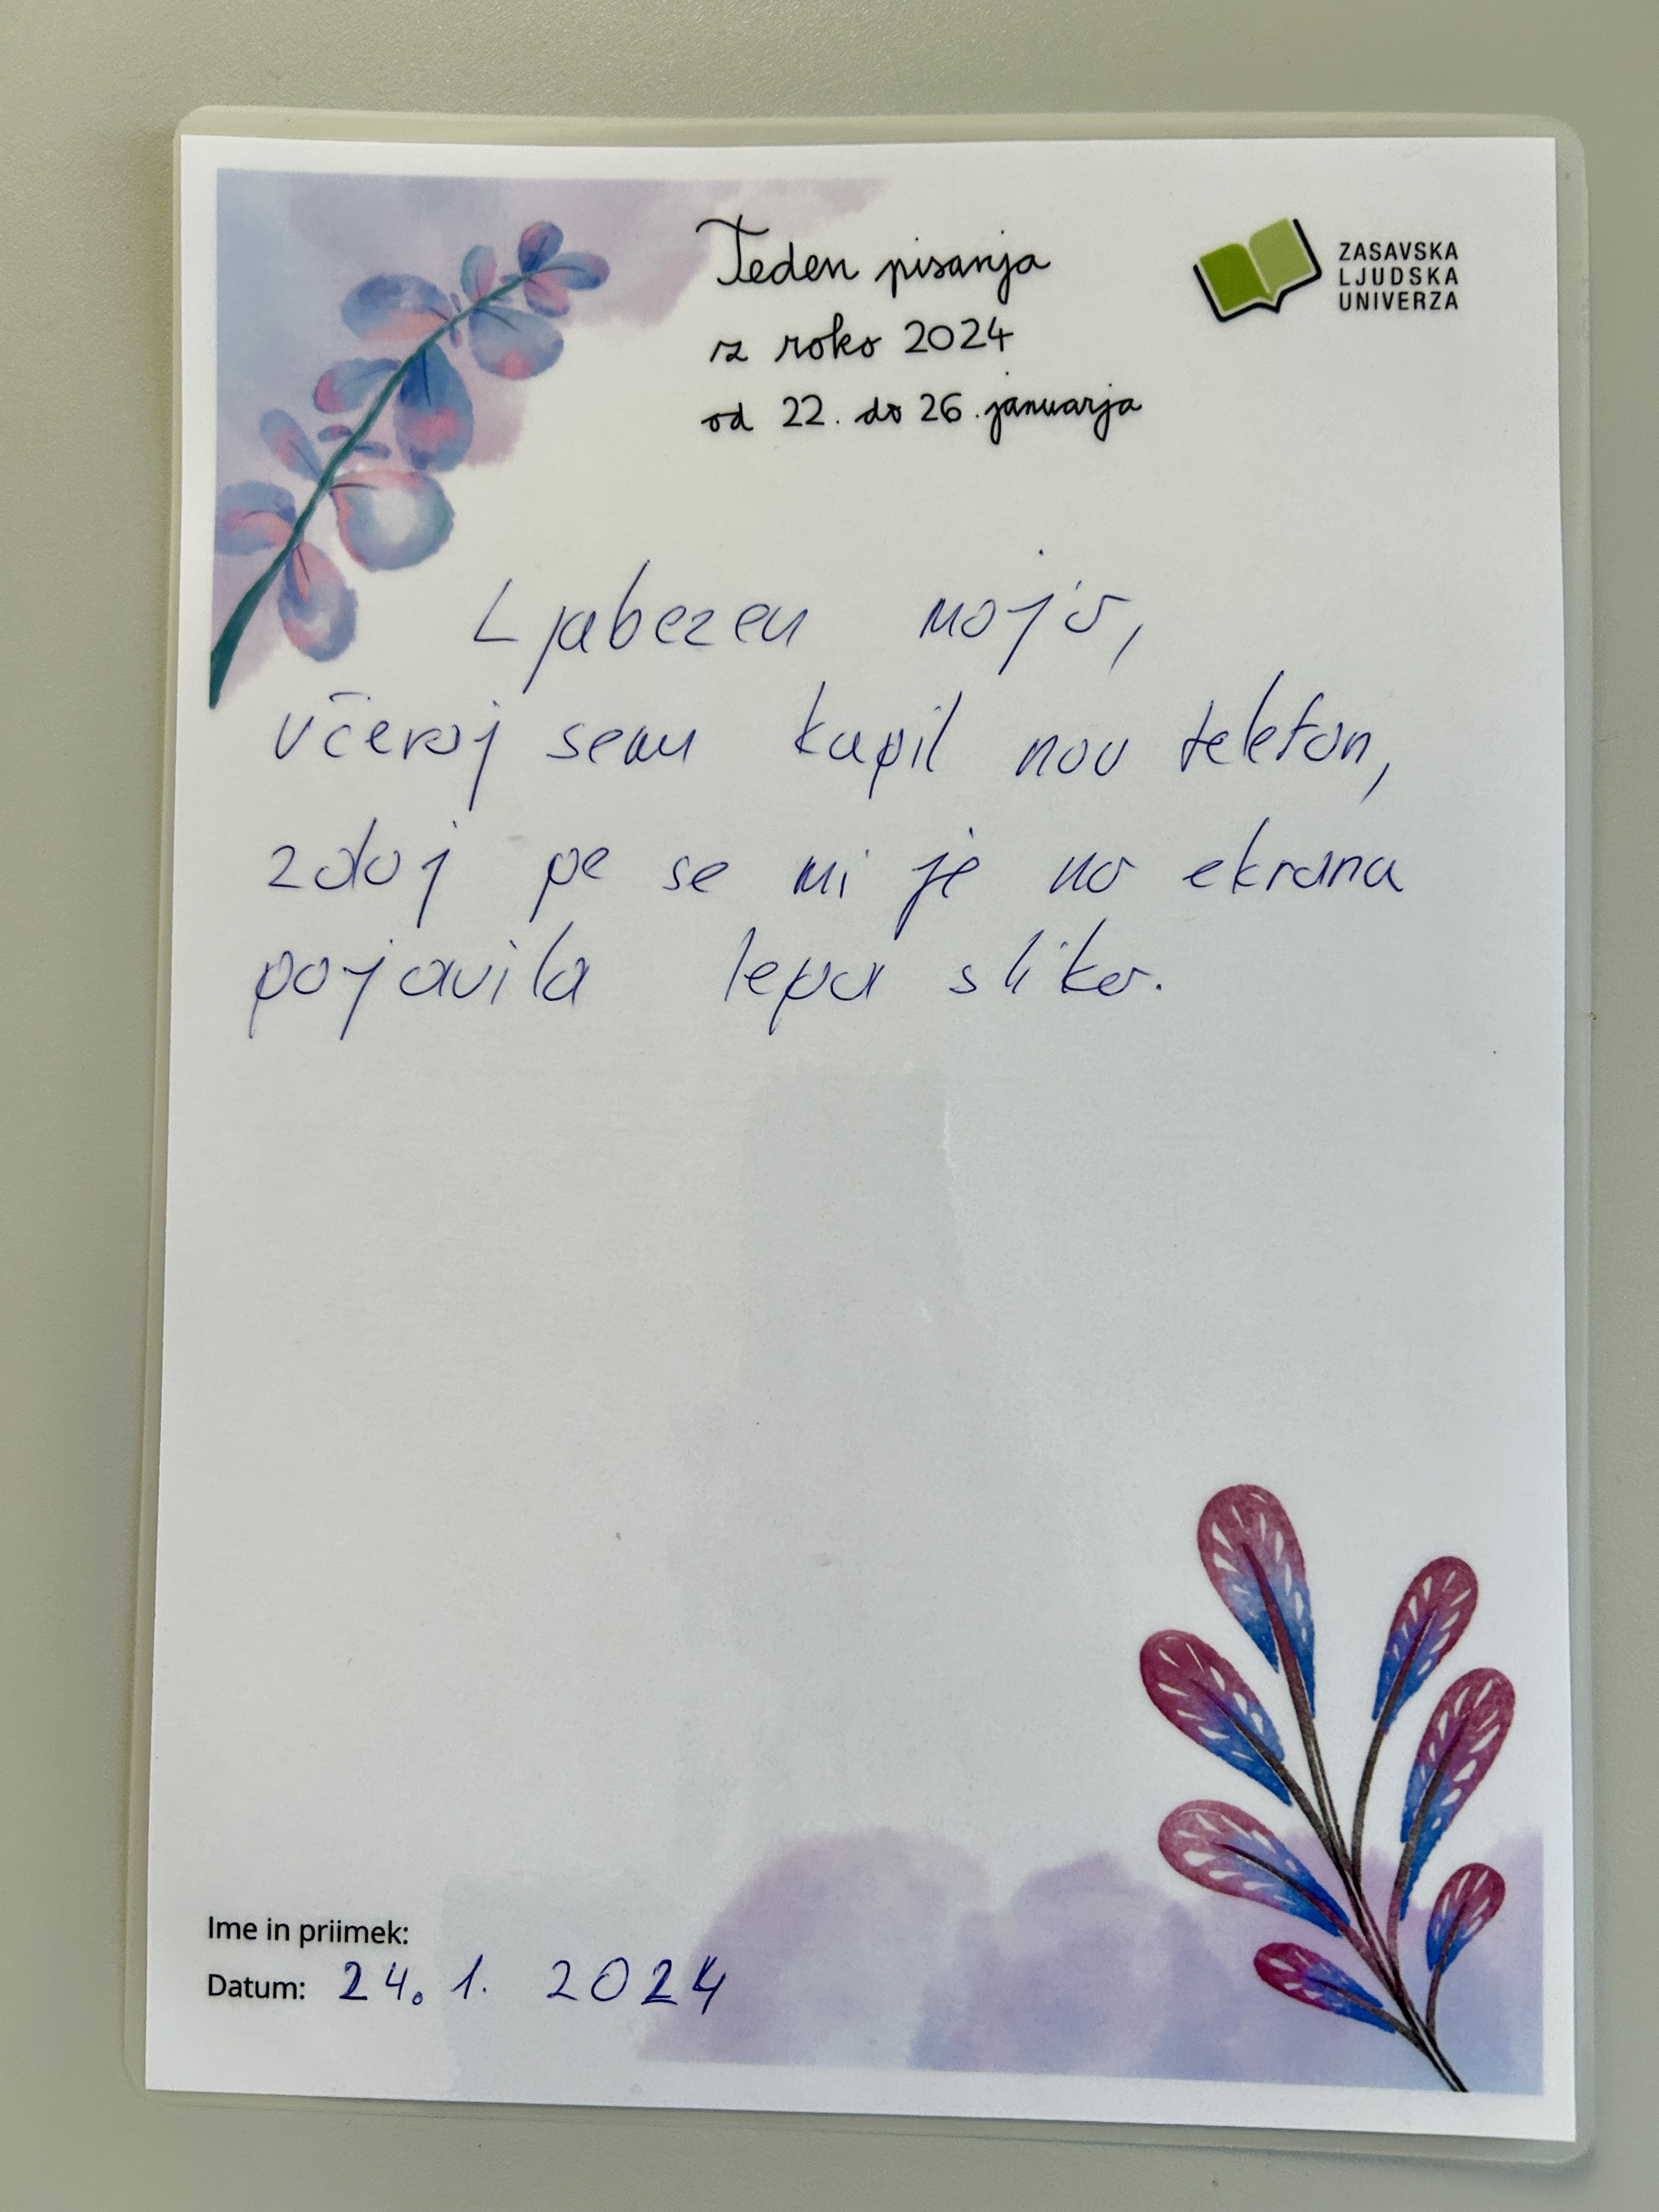 Teden pisanja
z roko 2024
od 22. do 26. januarja
ZASAVSKA
LJUDSKA
UNIVERZA
Ljubezen moja,
včeraj sem kupil nov telefon,
zdaj pa se mi je na ekranu
pojavila lepa slika.
Ime in priimek:
Datum: 24. 1. 2024